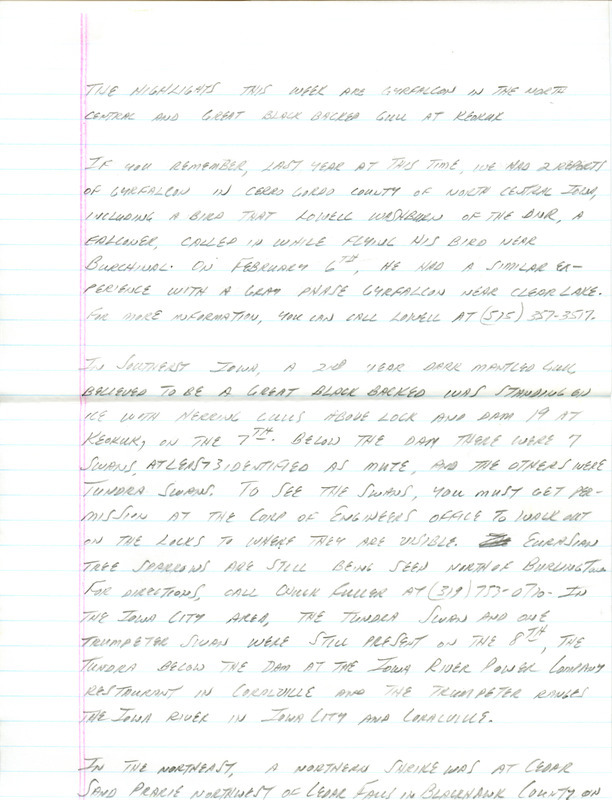 THE HIGHLIGHTS THIS WEEK ARE GYRFALCON IN THE NORTH
CENTRAL AND GREAT BLACK BACKED GULL AT KEOKUK
IF YOU REMEMBER, LAST YEAR AT THIS TIME, WE HAD 2 REPORTS
OF GYRFALCON IN CERRO GORDO COUNTY OF NORTH CENTRAL IOWA,
INCLUDING A BIRD THAT LOWELL WASHBURN OF THE DNR, A
FALCONER, CALLED IN WHILE FLYING HIS BIRD NEAR
BURCHINAL. ON FEBRUARY 6TH, HE HAD A SIMILAR EX-
PERIENCE WITH A GRAY PHASE GYRFALCON NEAR CLEAR LAKE.
FOR MORE INFORMATION, YOU CAN CALL LOWELL AT (515) 357-3517.
IN SOUTHEST IOWA, A 2ND YEAR DARK MANTLED GULL
BELIEVED TO BE A GREAT BLACK BACKED WAS STANDING ON
ICE WITH HERRING GULLS ABOVE LOCK AND DAM 19 AT
KEOKUK, ON THE 7TH. BELOW THE DAM THERE WERE 7
SWANS, AT LEAST 3 IDENTIFIED AS MUTE, AND THE OTHERS WERE
TUNDRA SWANS. TO SEE THE SWANS, YOU MUST GET PER-
MISSION AT THE CORP OF ENGINEERS OFFICE TO WALK OUT
ON THE LOCKS TO WHERE THEY ARE VISIBLE. EURASIAN
TREE SPARROWS ARE STILL BEING SEEN NORTH OF BURLINGTON
FOR DIRECTIONS, CALL CHUCK FULLER AT (319) 753-0770. IN
THE IOWA CITY AREA, THE TUNDRA SWAN AND ONE
TRUMPETER SWAN WERE STILL PRESENT ON THE 8TH, THE
TUNDRA BELOW THE DAM AT THE IOWA RIVER POWER COMPANY
RESTAURANT IN CORALVILLE AND THE TRUMPETER RANGES
THE IOWA RIVER IN IOWA CITY AND CORALVILLE.
IN THE NORTHEAST, A NORTHERN SHRIKE WAS AT CEDAR
SAND PRARIE NORTHWEST OF CEDAR FALLS IN BLACKHAWK COUNTY ON